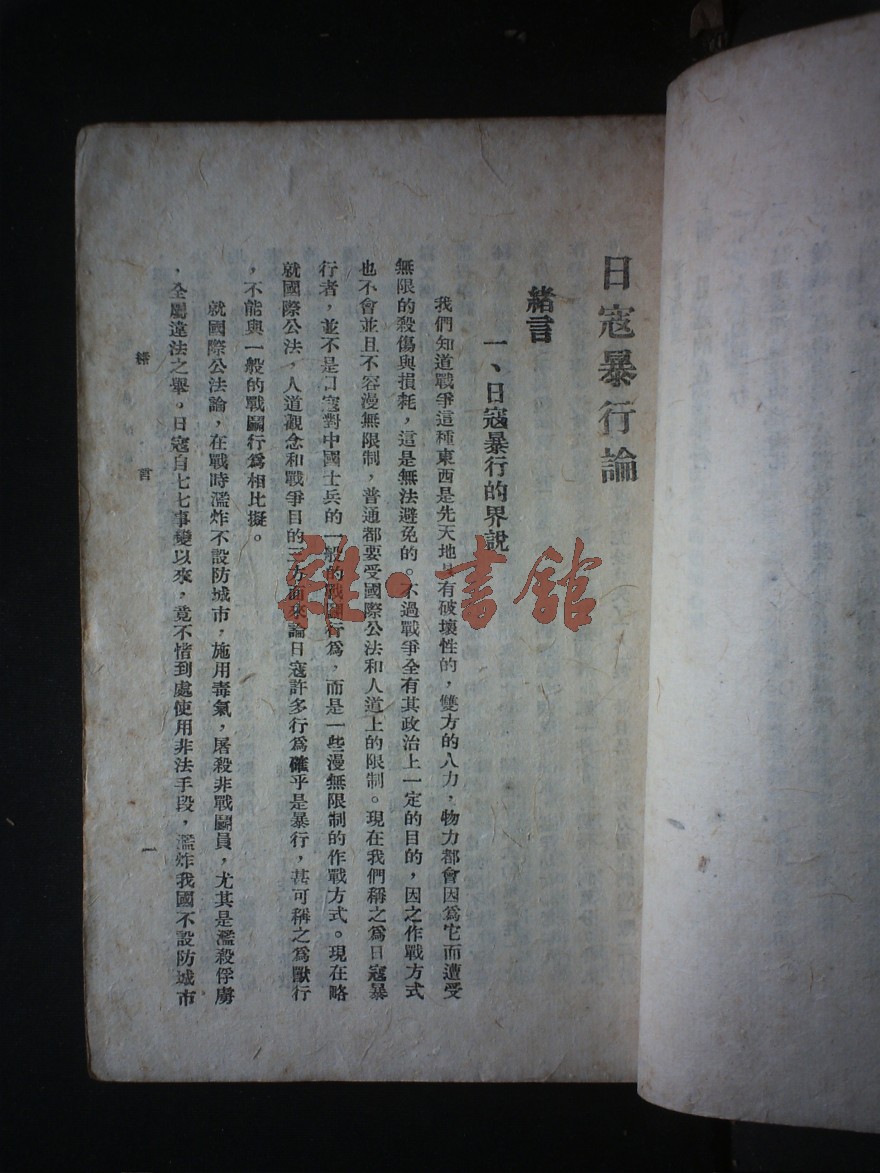 日寇暴行論
緒言
一、日寇暴行的界說
我們知道戰爭這種東西是先天地具有破壞性的，雙方的人力，物力都會因爲它而遭受
無限的殺傷與損耗，這是無法避免的。不過戰爭全有其政治上一定的目的，因之作戰方式
也不會並且不容漫無限制，普通都要受國際公法和人道上的限制。現在我們稱之爲日寇暴
行者，並不是日寇對中國士兵的一般的戰鬬行爲，而是一些漫無限制的作戰方式。現在略
就國際公法，人道觀念和戰爭目的三方面來論日寇許多行爲確乎是暴行，甚可稱之爲獸行
，不能與一般的戰鬬行爲相比擬。
就國際公法論，在戰時濫炸不設防城市，施用毒氣，屠殺非戰鬬員，尤其是濫殺俘虜
，全屬違法之舉。日寇自七七事變以來，竟不惜到處使用非法手段，濫炸我國不設防城市
緒言
一
雜·書館